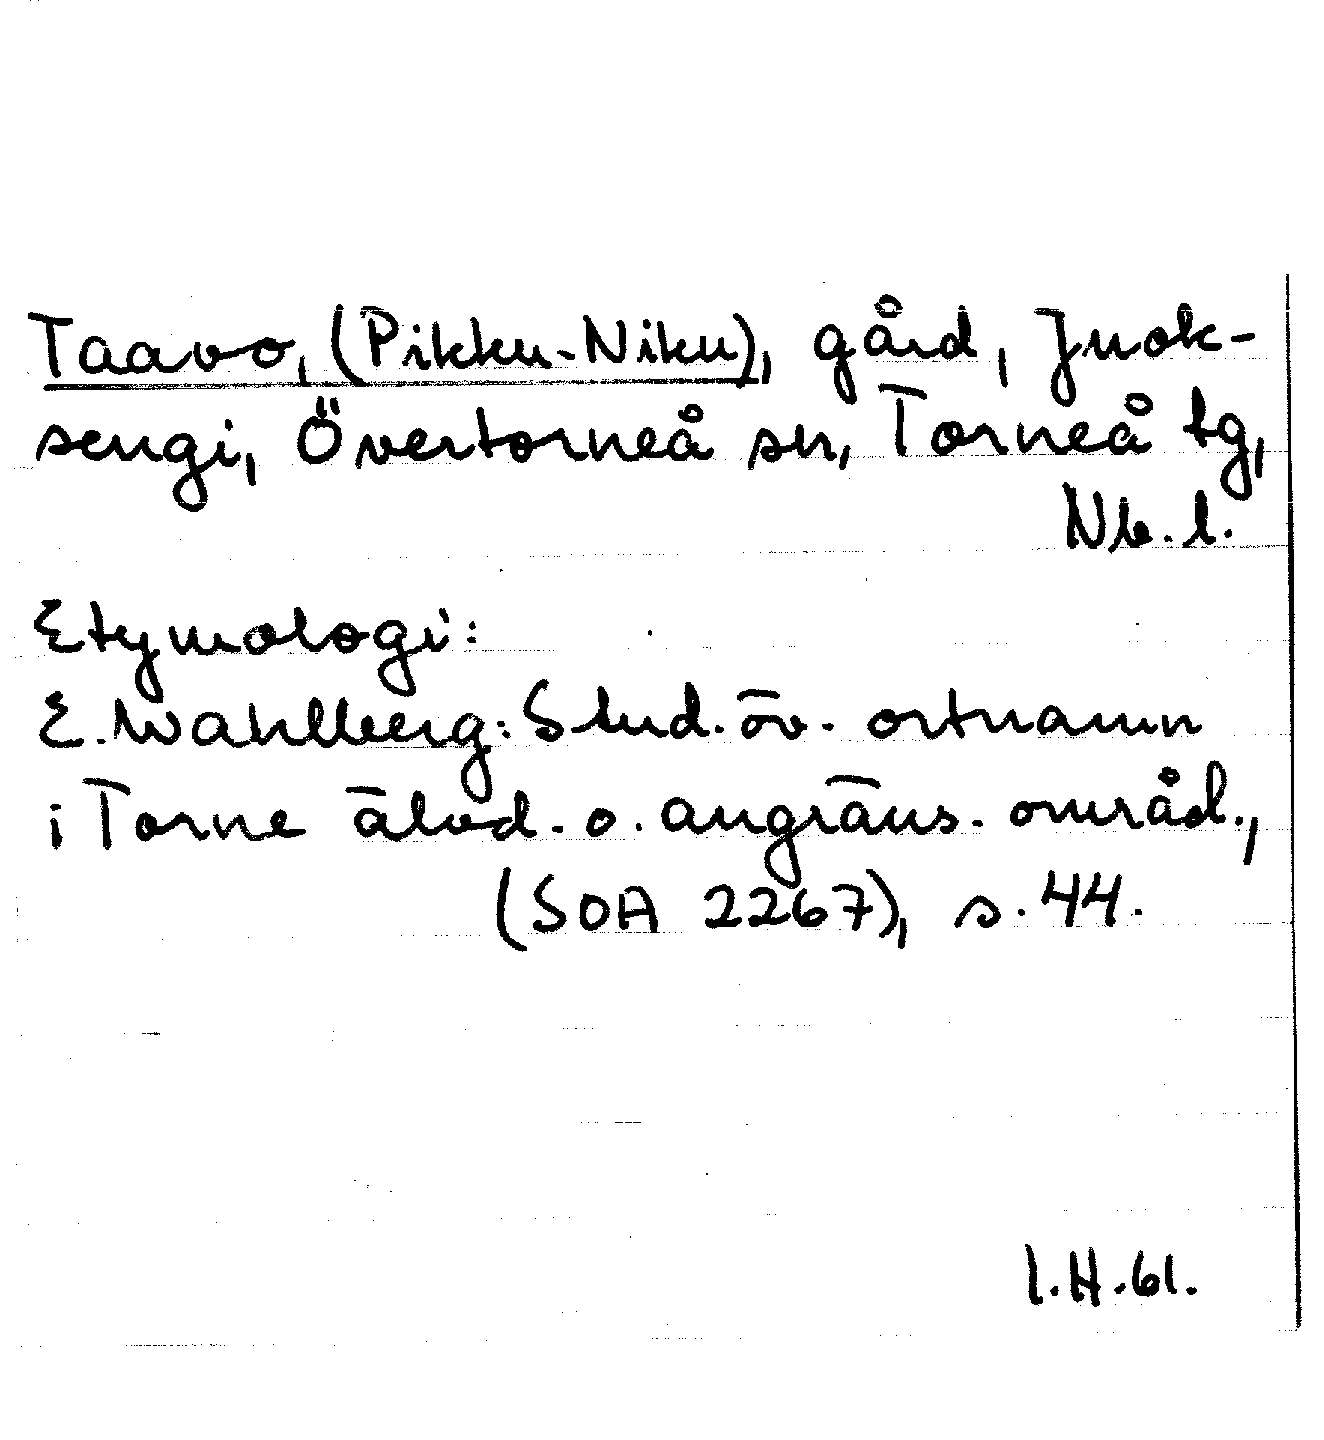 Taavo, (Pikku-Niku), gård, Juok-
sengi, Övertorneå sn, Torneå tg,
Nb.l.
Etymologi:
E. Wahlberg: Stud. öv. ortnamn
i Torne älvd. o. angräns. områd.,
(SOA 2267), s. 44.
I.H.61.